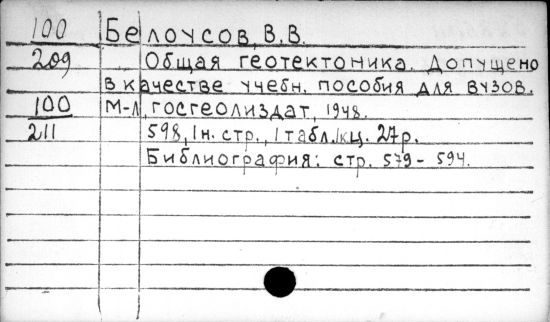 100 Белоусов, В.В.
209 Общая геотектоника. Допущено
в качестве учебн. пособия для вузов.
100 М-Л, госгеолиздат, 1948.
211 598, 1 н. стр., 1 табл./кц. 27р.
Библиография: стр. 579-594.